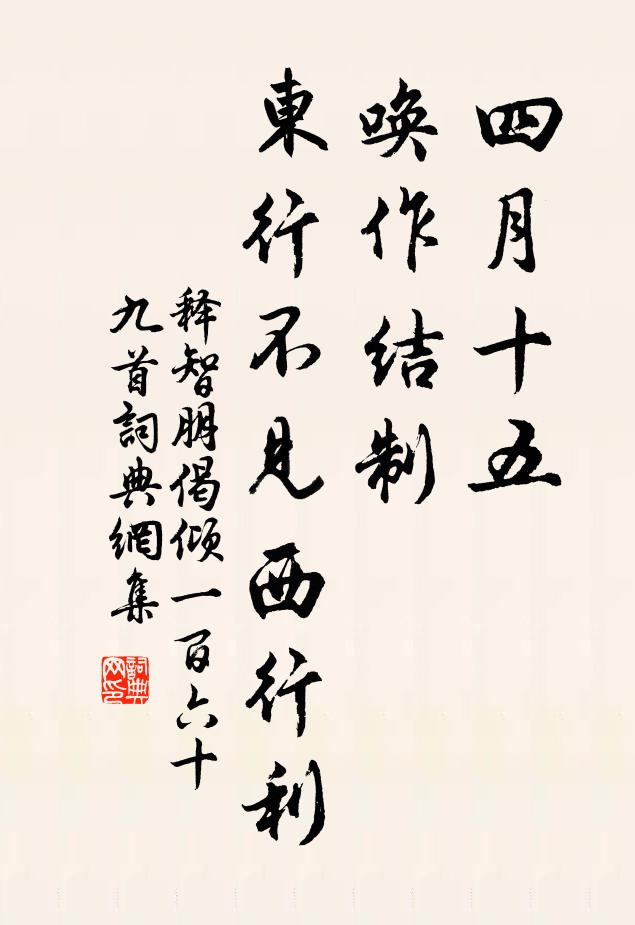 四月十五
喚作结制
東行不見西行利
释智朋偈倾一百六十
九首詞典網集
詞典网印